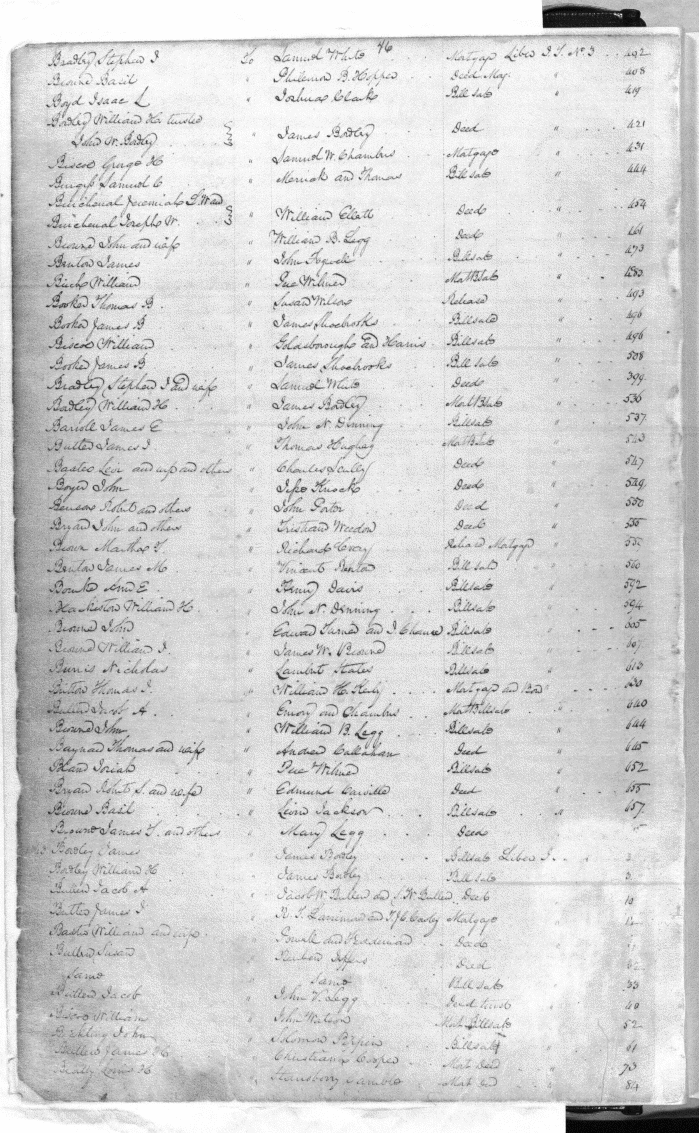 46
Bradley Stephen J To Samuel White Mortgage Liber J. T. No 3 402
Browne Basil " Philemon B. Hopper Deed Mog. " 408
Boyd Isaac L " Joshua Clark Bill sale " 419
Bodley William H. trustee
John W. Bodley " James Bodley Deed " 421
Biscoe George H " Samuel W. Chambers Mortgage " 431
Burgess Samuel C " Merrick and Thomas Bill sale " 444
Burchenal Jeremiah S. W and
Burchenal Joseph W. " William Elliott Deed " 454
Browne John and wife " William B. Legg Deed " 461
Benton James " John Billsale " 473
William " Pere Wilmer " 483
Booker Thomas B " Susan Wilson Release " 493
Booker James B " James Shoebrooks Billsale " 496
Biscoe William " Goldsborough and Harris Billsale " 496
Booker James B " James Shoebrooks Bill sale " 508
Bradley Stephen J and wife " Samuel White Deed " 399
Bodley William H. " James Bodley " 536
Barroll James E " John N. Denning Billsale " 537
Butler James J. " Thomas Hughey " 543
Baxter Levi and wife and others " Charles Scully Deed " 547
Boyer John " Jesse Knock Deed " 549
Benson Robert and others " John Porter Deed " 550
Bryan John and others " Tristian Weedon Deed " 555
Brown Martha T. " Richard Release Mortgage " 557
Benton James M. " Vincent Benton Bill sale " 560
Ann E " Henry Davis Billsale " 592
Blackiston William H. " John N. Denning Billsale " 594
Browne John " Edward Turner and J. Chance Billsale " 605
Browne William J. " James W. Browne Billsale " 607
Burris Nicholas " Lambert States Billsale " 613
Britton Thomas J. " William H. Mortgage and " 630
Bullen Jacob A. " Emory and Chambers " 640
Browne John " William B. Legg Billsale " 644
Baynard Thomas and wife " Andrew Callahan Deed " 645
Blan Josiah " Pere Wilmer Billsale " 652
Bryan Robert S. and wife " Edmund Carville Deed " 655
Browne Basil " Levin Jackson Billsale " 657
Browne James T. and others " Mary Legg Deed
Bodley James " James Bodley Billsale Liber J. 3
Bodley William H " James Bodley Bill sale 3
Bullen Jacob A " Jacob W. Bullen and S. W. Bullen Deed 10
Butler James J " Mortgage 12
Baxter William and wife " Powell and Deed
Bullen Susan " Reuben Deed 32
Same " Same Bill sale 33
Bullen Jacob " John V. Legg Deed trust " 40
Biscoe William " John Watson Mort Billsale " 52
John " Solomon Pippin Billsale " 61
Bullen James H " Christiana Cooper Mort Deed " 73
Bradly Louis H " Stansbury Mort Deed " 84